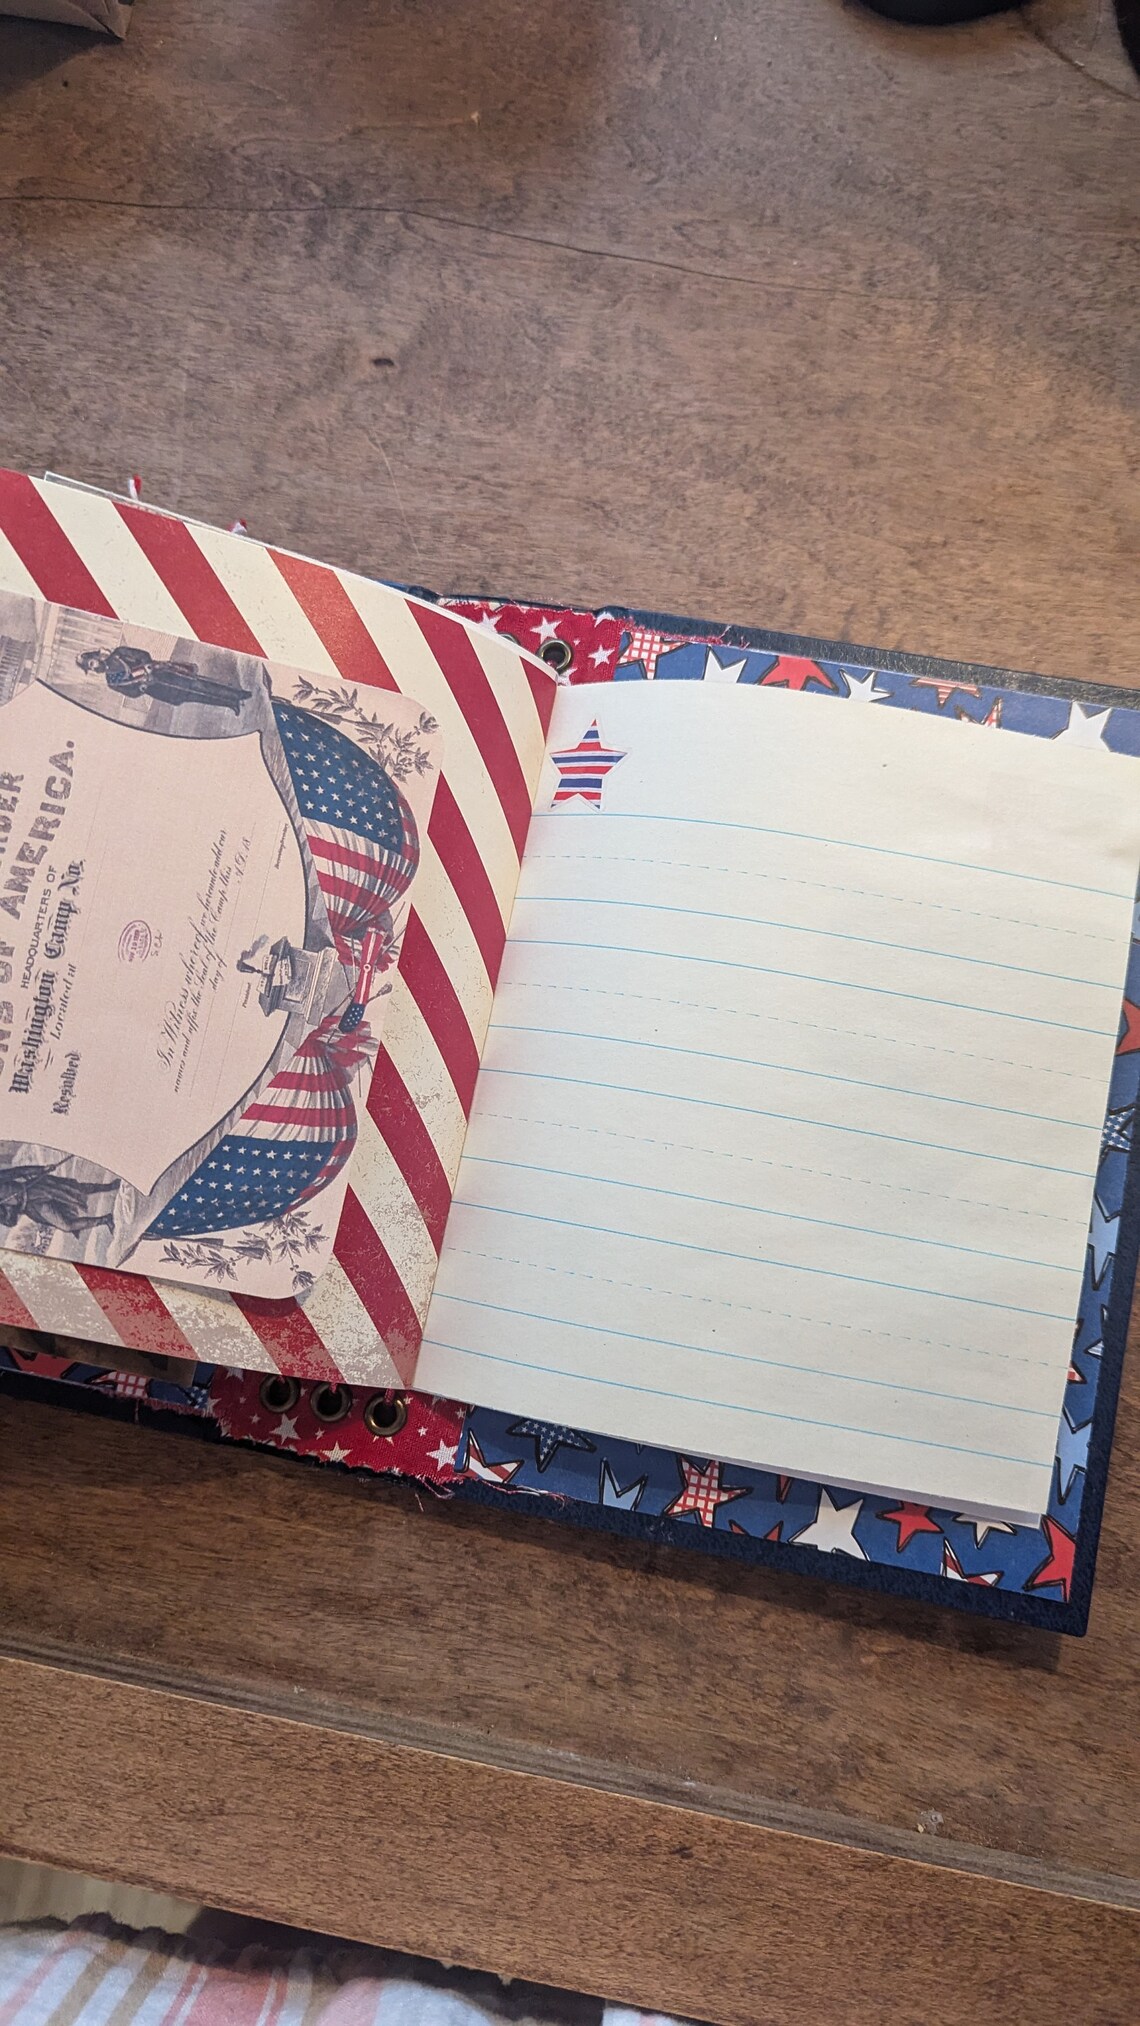 ORDER
SONS OF AMERICA.
HEADQUARTERS OF
Washington Camp No.
Located at
Resolved
In Witness whereof, we hereunto add our
names and affix the Seal of the Camp this
day of A.D. 18